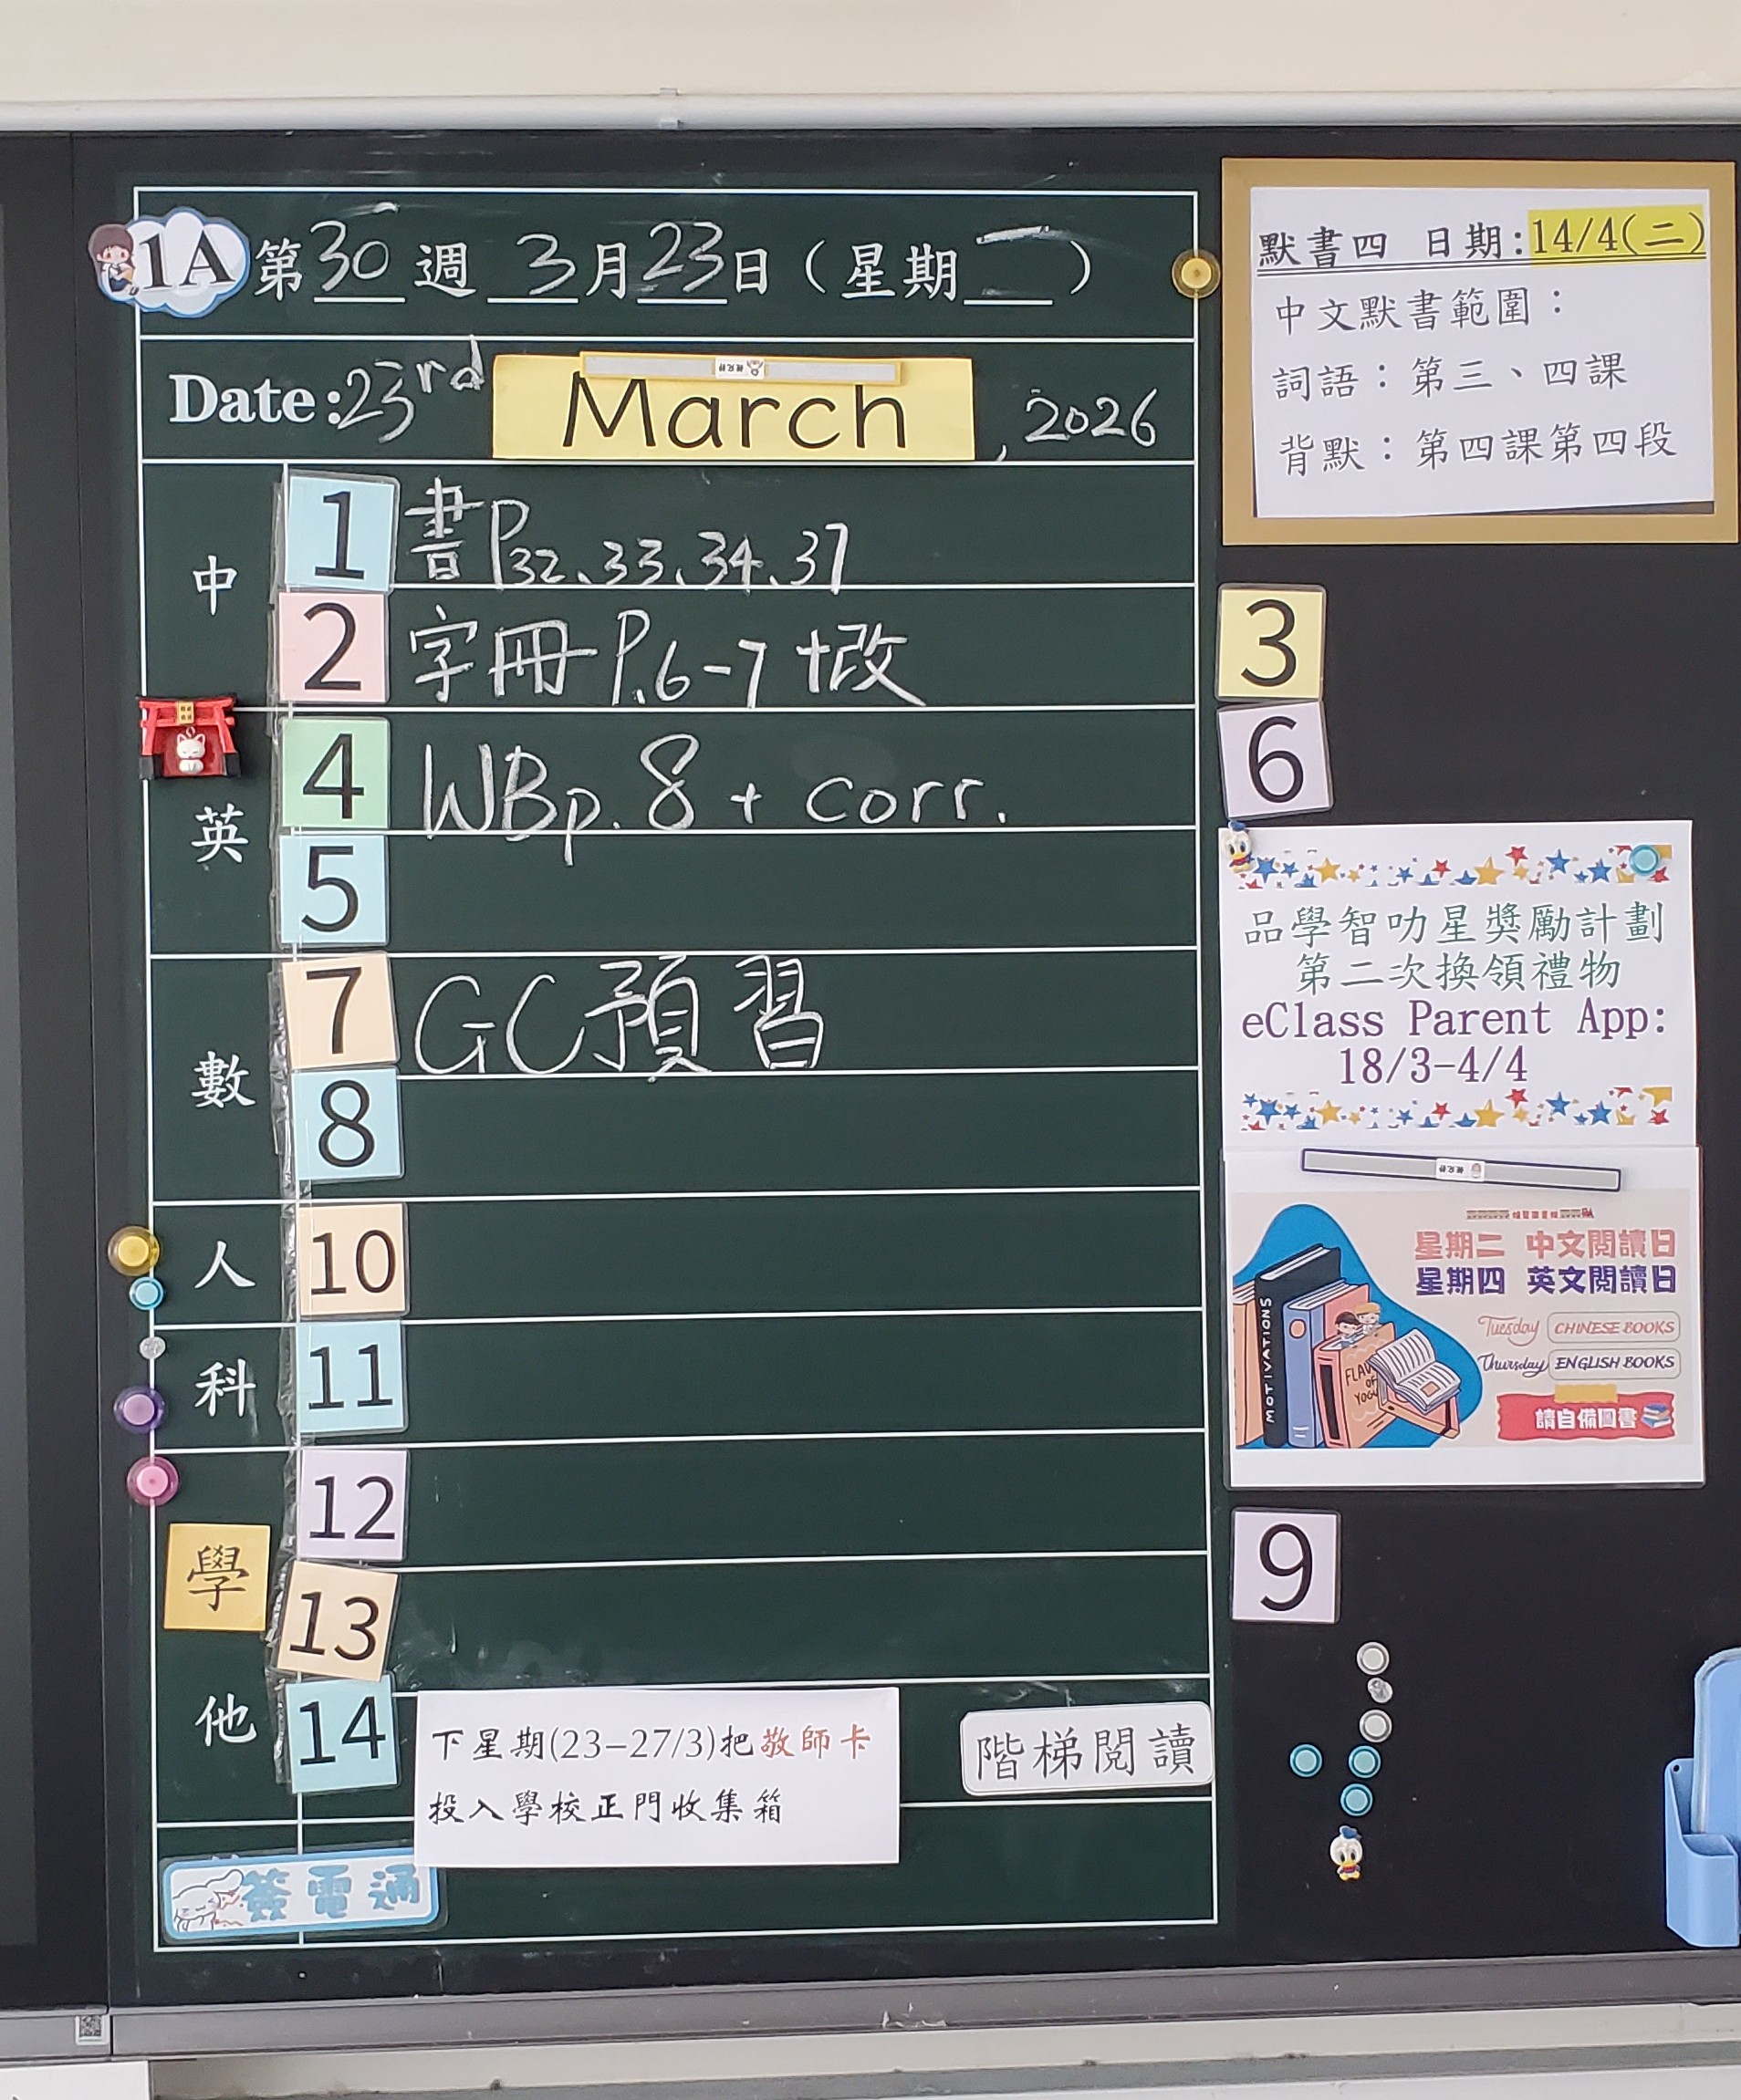 1A 第30週 3月23日（星期一）
Date: 23rd March, 2026
中
1 書P32、33、34、37
2 字冊 P.6-7 +改
英
4 WBp. 8 + corr.
5
數
7 GC預習
8
人 10
科 11
12
學 13
他 14
下星期(23-27/3)把敬師卡
投入學校正門收集箱
階梯閱讀
簽電通
默書四 日期:14/4(二)
中文默書範圍：
詞語：第三、四課
背默：第四課第四段
3
6
品學智叻星獎勵計劃
第二次換領禮物
eClass Parent App:
18/3-4/4
星期二 中文閱讀日
星期四 英文閱讀日
Tuesday CHINESE BOOKS
Thursday ENGLISH BOOKS
請自備圖書
MOTIVATIONS
9